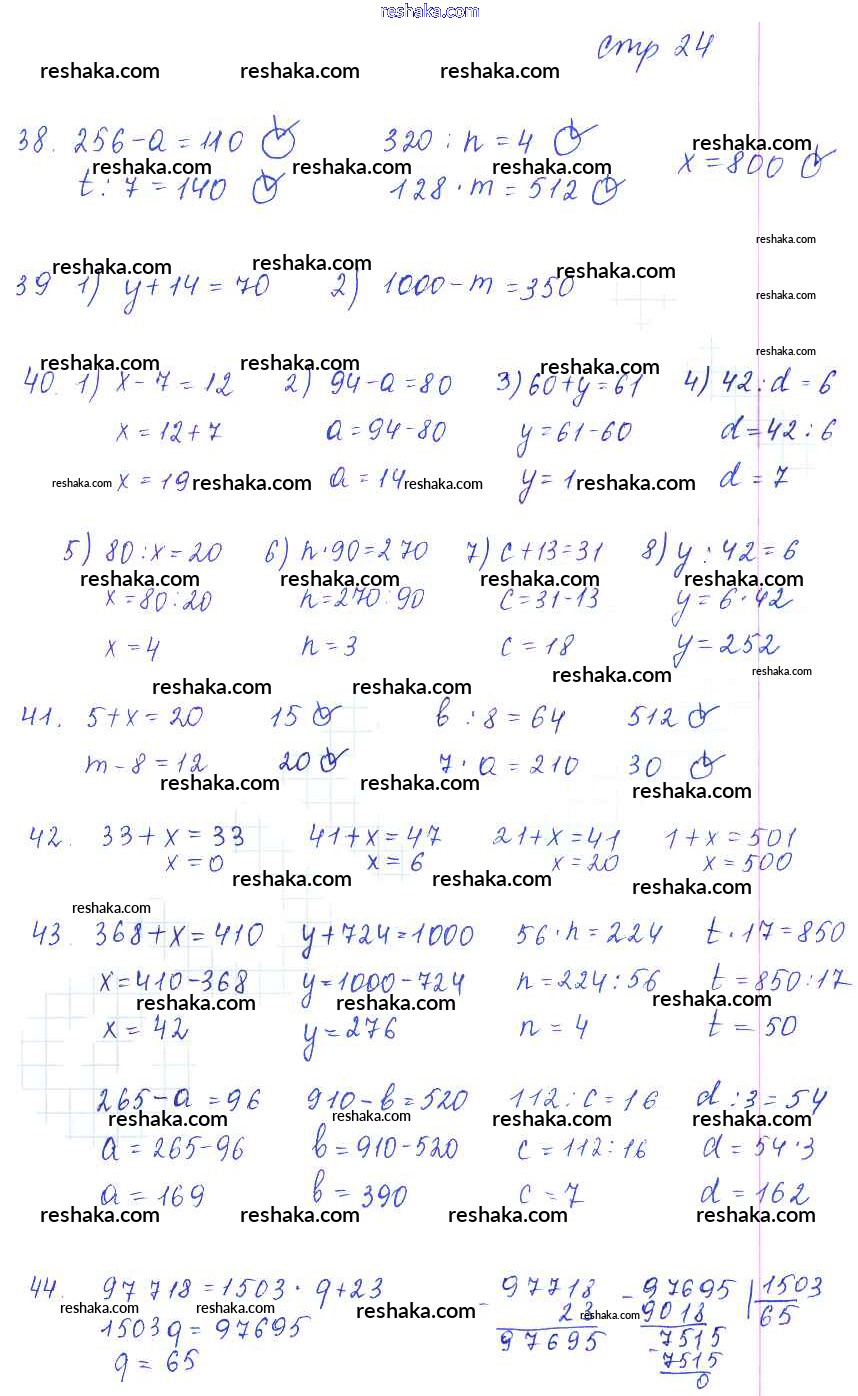 reshaka.com
стр 24
reshaka.com reshaka.com reshaka.com
38. 256 - a = 110 320 : n = 4
reshaka.com
x = 800
reshaka.com reshaka.com reshaka.com
t : 7 = 140 128 · m = 512
reshaka.com
reshaka.com reshaka.com reshaka.com
39 1) y + 14 = 70 2) 1000 - m = 350
reshaka.com
reshaka.com
reshaka.com reshaka.com reshaka.com
40. 1) x - 7 = 12 2) 94 - a = 80 3) 60 + y = 61 4) 42 : d = 6
x = 12 + 7 a = 94 - 80 y = 61 - 60 d = 42 : 6
reshaka.com x = 19 reshaka.com a = 14 reshaka.com y = 1 reshaka.com d = 7
5) 80 : x = 20 6) n · 90 = 270 7) c + 13 = 31 8) y : 42 = 6
reshaka.com reshaka.com reshaka.com reshaka.com
x = 80 : 20 n = 270 : 90 c = 31 - 13 y = 6 · 42
x = 4 n = 3 c = 18 y = 252
reshaka.com reshaka.com reshaka.com reshaka.com
41. 5 + x = 20 15 b : 8 = 64 512
m - 8 = 12 20 7 · a = 210 30
reshaka.com reshaka.com reshaka.com
42. 33 + x = 33 41 + x = 47 21 + x = 41 1 + x = 501
x = 0 x = 6 x = 20 x = 500
reshaka.com reshaka.com reshaka.com
reshaka.com
43. 368 + x = 410 y + 724 = 1000 56 · n = 224 t · 17 = 850
x = 410 - 368 y = 1000 - 724 n = 224 : 56 t = 850 : 17
reshaka.com reshaka.com reshaka.com
x = 42 y = 276 n = 4 t = 50
265 - a = 96 910 - b = 520 112 : c = 16 d : 3 = 54
reshaka.com reshaka.com reshaka.com reshaka.com
a = 265 - 96 b = 910 - 520 c = 112 : 16 d = 54 · 3
a = 169 b = 390 c = 7 d = 162
reshaka.com reshaka.com reshaka.com reshaka.com
44. 97 718 = 1503 · q + 23 - 97718 - 97695 | 1503
reshaka.com reshaka.com reshaka.com 23 9018 reshaka.com 65
1503q = 97695 97695 - 7515
q = 65 7515
0